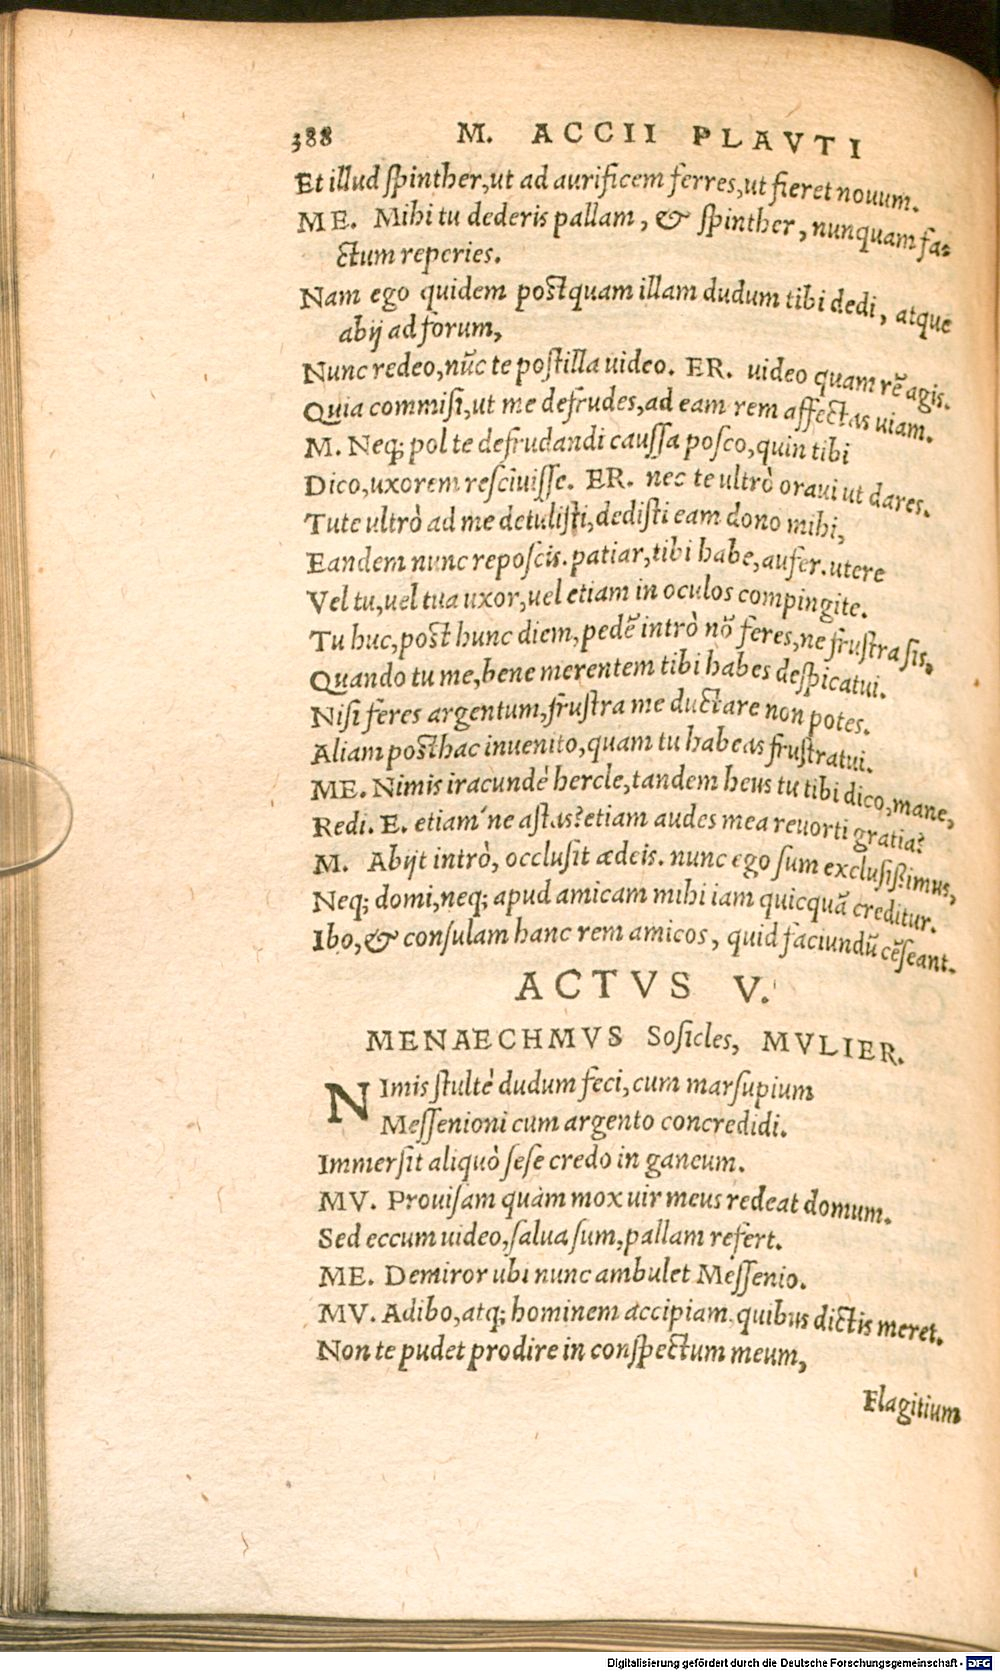 388 M. ACCII PLAVTI
Et illud spinther,ut ad aurificem ferres,ut fieret nouum.
ME. Mihi tu dederis pallam, & spinther, nunquam fa=
ctum reperies.
Nam ego quidem postquam illam dudum tibi dedi, atque
abij ad forum,
Nunc redeo,nūc te postilla uideo. ER. uideo quam rē agis.
Quia commisi,ut me defrudes,ad eam rem affectas uiam.
M. Neq; pol te defrudandi caussa posco,quin tibi
Dico,uxorem resciuisse. ER. nec te ultrò oraui ut dares.
Tute ultrò ad me detulisti,dedisti eam dono mihi,
Eandem nunc reposcis.patiar,tibi habe,aufer.utere
Vel tu,uel tua uxor,uel etiam in oculos compingite.
Tu huc,post hunc diem,pedē intrò nō feres,ne frustra sis,
Quando tu me,bene merentem tibi habes despicatui.
Nisi feres argentum,frustra me ductare non potes.
Aliam posthac inuenito,quam tu habeas frustratui.
ME. Nimis iracundè hercle,tandem heus tu tibi dico,mane,
Redi. E. etiam´ne astas?etiam audes mea reuorti gratia?
M. Abijt intrò, occlusit ædeis. nunc ego sum exclusißimus,
Neq; domi,neq; apud amicam mihi iam quicquā creditur.
Ibo,& consulam hanc rem amicos, quid faciundū cēseant.
ACTVS V.
MENAECHMVS Sosicles, MVLIER.
NImis stultè dudum feci,cum marsupium
Messenioni cum argento concredidi.
Immersit aliquò sese credo in ganeum.
MV. Prouisam quàm mox uir meus redeat domum.
Sed eccum uideo,salua sum,pallam refert.
ME. Demiror ubi nunc ambulet Messenio.
MV. Adibo,atq; hominem accipiam,quibus dictis meret.
Non te pudet prodire in conspectum meum,
Flagitium
Digitalisierung gefördert durch die Deutsche Forschungsgemeinschaft - DFG